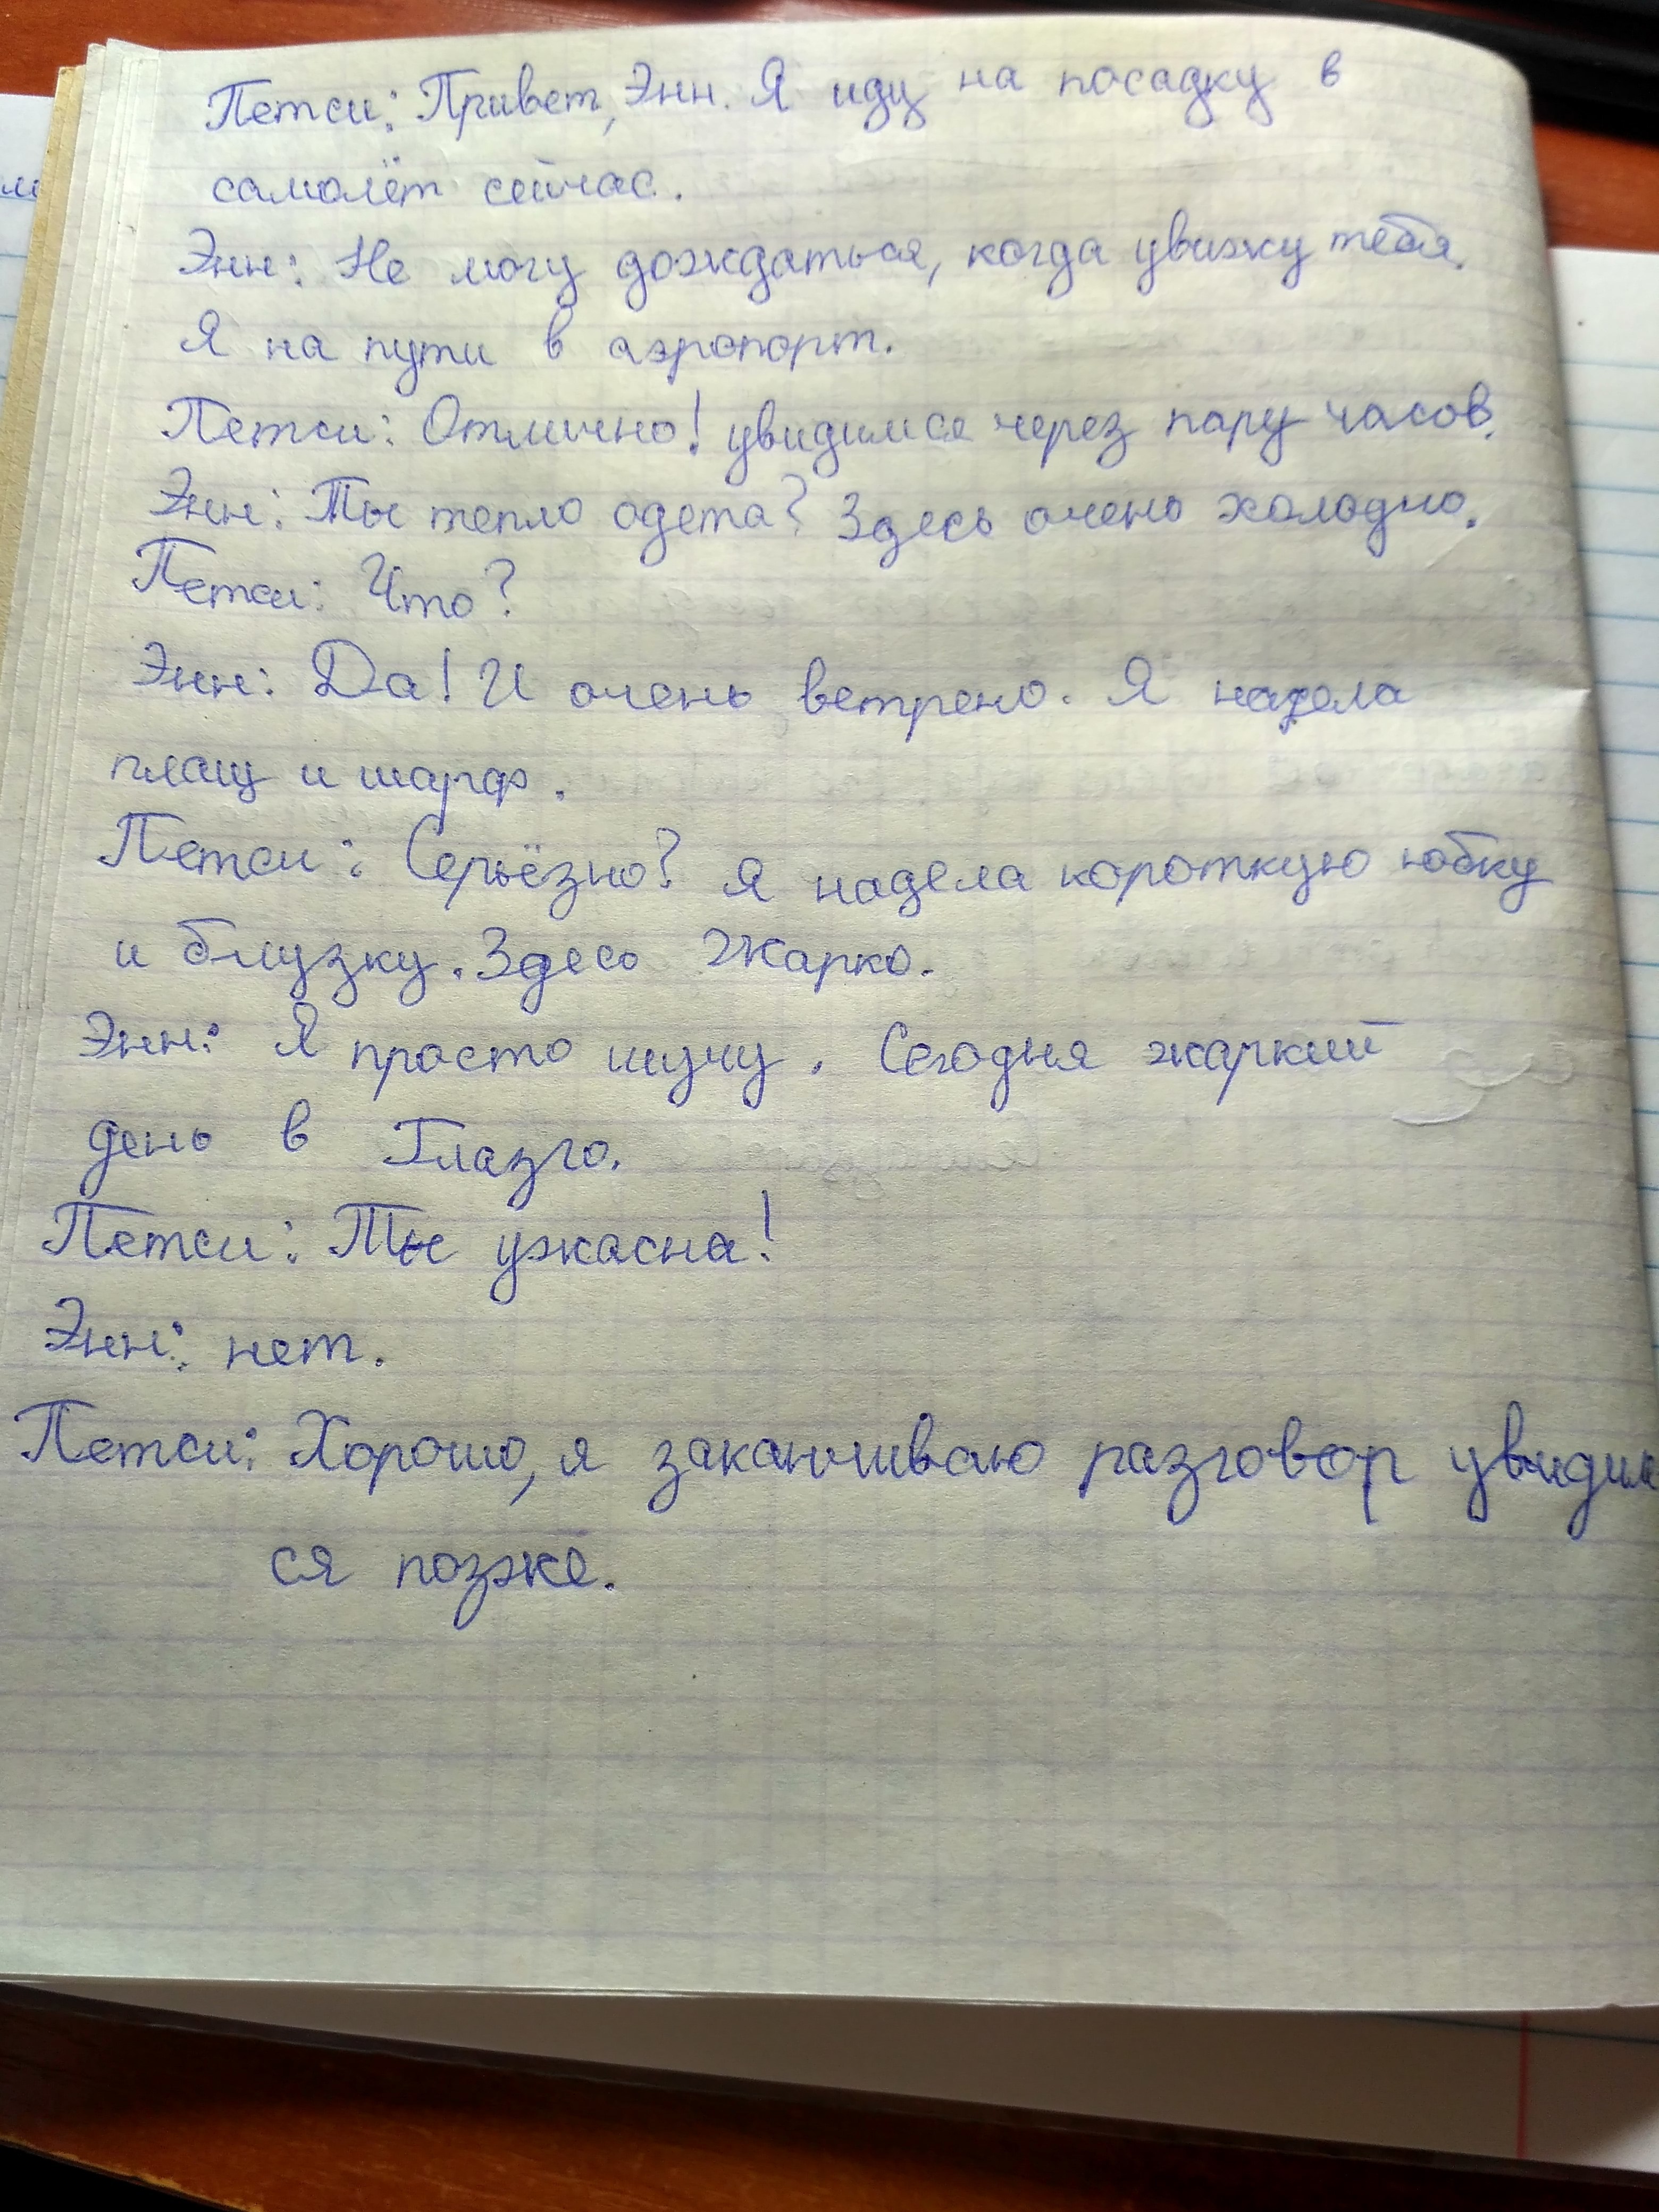 Петси: Привет, Энн. Я иду на посадку в
самолёт сейчас.
Энн: Не могу дождаться, когда увижу тебя.
Я на пути в аэропорт.
Петси: Отлично! увидимся через пару часов.
Энн: Ты тепло одета? Здесь очень холодно.
Петси: Что?
Энн: Да! И очень ветрено. Я надела
плащ и шарф.
Петси: Серьёзно? Я надела короткую юбку
и блузку. Здесь жарко.
Энн: Я просто шучу. Сегодня жаркий
день в Глазго.
Петси: Ты ужасна!
Энн: нет.
Петси: Хорошо, я заканчиваю разговор увидим
ся позже.